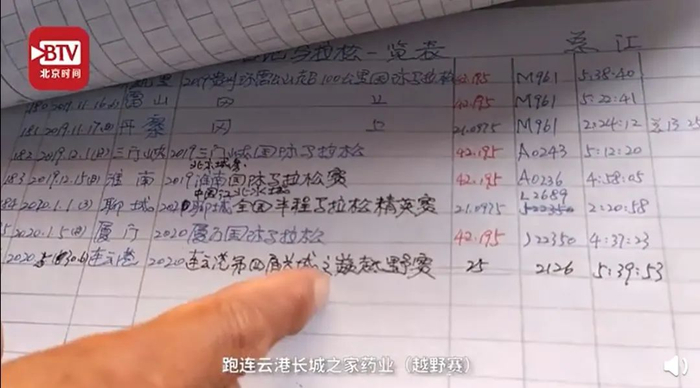 BTV
北京时间
马拉松一览表 总 江
2019 100公里国际马拉松 42.195 M961 5:38:40
2019.11.16 雷山 42.195 M961 5:22:41
181 2019.11.17(日) 丹寨 21.0975 M961 2:24:12
2019.12.1(日) 三门峡 2019三门峡国际马拉松 42.195 A0243 5:12:20
183 2019.12.15(日) 淮南 2019淮南国际马拉松赛 42.195 A0236 4:58:05
2020.1.1(三) 聊城 2020聊城全国半程马拉松精英赛 21.0975 L2689 2:20:58
2020.1.5(日) 厦门 2020厦门国际马拉松 42.195 J22350 4:37:23
2020 连云港 2020连云港第四届长城之 越野赛 25 2126 5:39:53
跑连云港长城之家药业（越野赛）